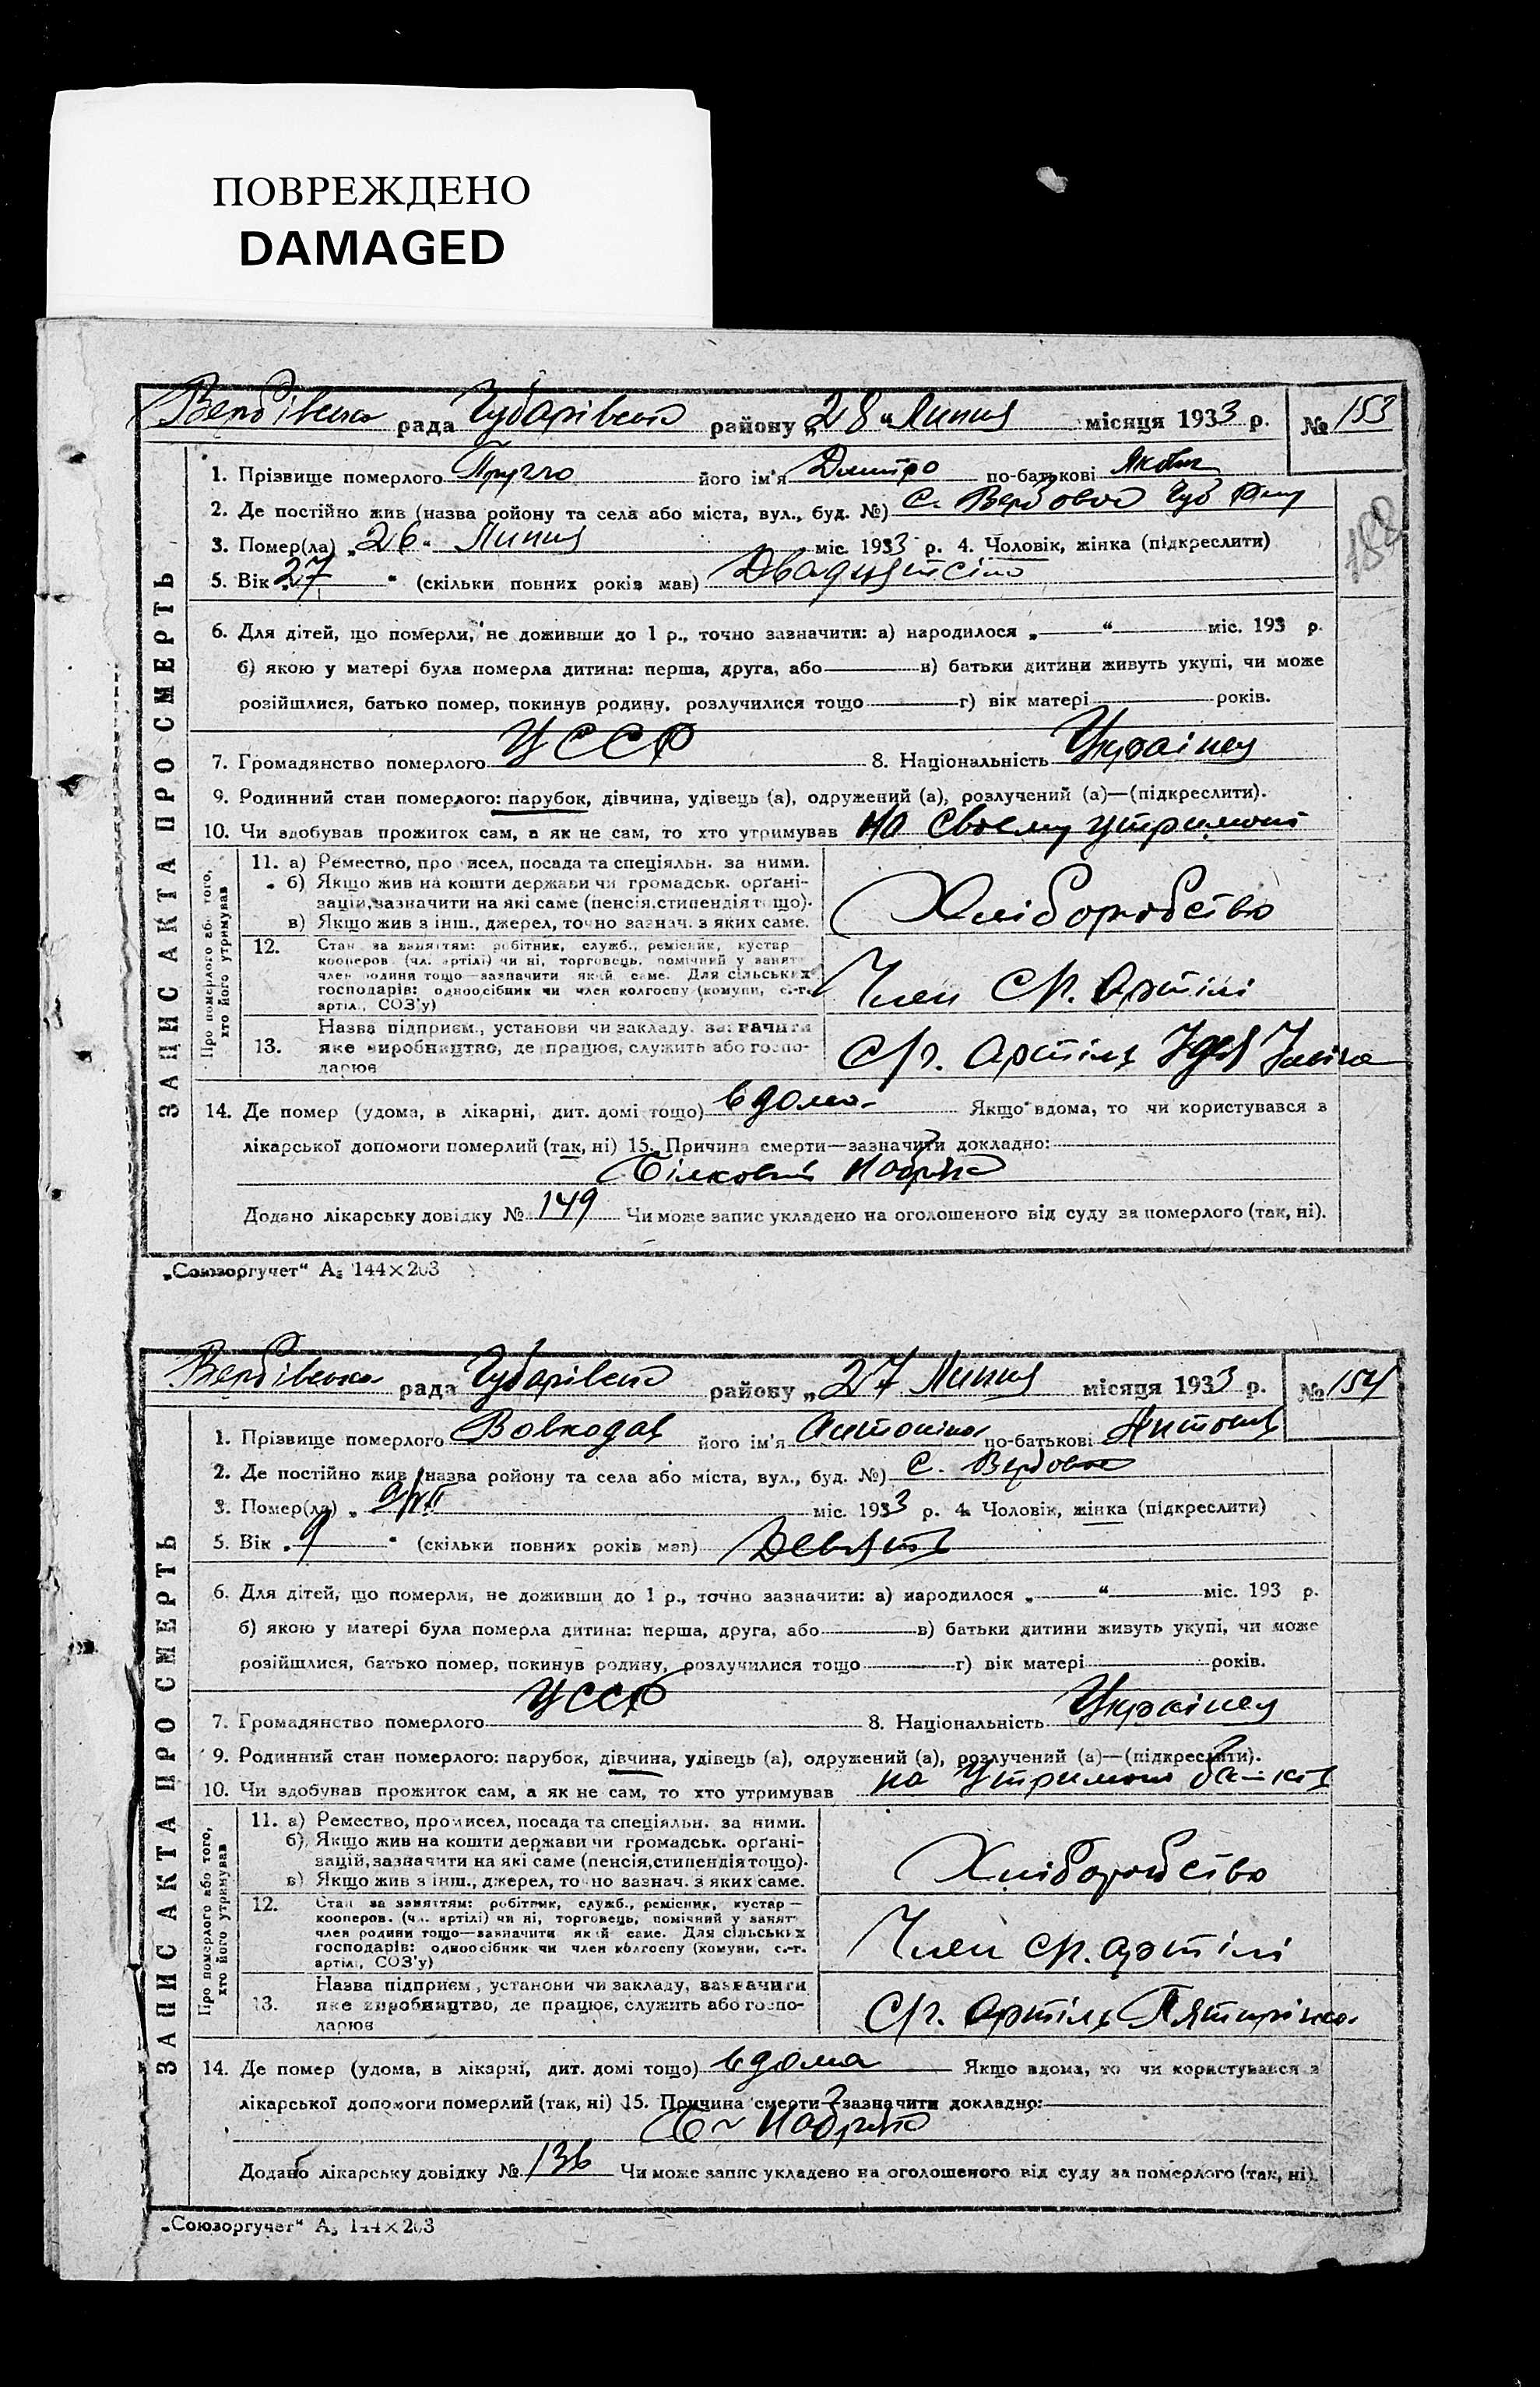 ПОВРЕЖДЕНО
DAMAGED
Вербівська рада Чубарівського району „28“ Липня місяця 1933 р. № 153
188
ЗАПИС АКТА ПРО СМЕРТЬ
1. Прізвище померлого його ім'я Дмитро по-батькові Яков
2. Де постійно жив (назва ройону та села або міста, вул., буд. №) С. Вербовое Чуб
3. Помер(ла) „26“ Липня міс. 1933 р. 4. Чоловік, жінка (підкреслити)
5. Вік „27“ (скільки повних років мав) Двадцятсім
6. Для дітей, що померли, не доживши до 1 р., точно зазначити: а) народилося „ “ міс. 193 р.
б) якою у матері була померла дитина: перша, друга, або в) батьки дитини живуть укупі, чи може
розійшлися, батько помер, покинув родину, розлучилися тощо г) вік матері років.
7. Громадянство померлого УССР 8. Національність Українец
9. Родинний стан померлого: парубок, дівчина, удівець (а), одружений (а), розлучений (а)—(підкреслити).
10. Чи здобував прожиток сам, а як не сам, то хто утримував на своему утримані
Про померлого або того, хто його утримував
11. а) Ремество, промисел, посада та спеціяльн. за ними.
б) Якщо жив на кошти держави чи громадськ. орґані-
зацій, зазначити на які саме (пенсія, стипендія тощо).
в) Якщо жив з інш., джерел, точно зазнач. з яких саме.
Хліборобство
12. Стан за заняттям: робітник, служб., ремісник, кустар—
кооперов. (чл. артілі) чи ні, торговець, помічний у занят
член родини тощо—зазначити який саме. Для сільських
господарів: одноосібник чи член колгоспу (комуни, с.-г.
артіл., СОЗ'у)
Член с/г. Артілі
13. Назва підприєм., установи чи закладу, зазначити
яке виробництво, де працює, служить або госпо-
дарює
с/г. Артіль
14. Де помер (удома, в лікарні, дит. домі тощо) вдома Якщо вдома, то чи користувався з
лікарської допомоги померлий (так, ні) 15. Причина смерти—зазначити докладно:
Білковий набряк
Додано лікарську довідку № 149 Чи може запис укладено на оголошеного від суду за померлого (так, ні).
„Союзоргучет“ А₅ 144×203
Вербівська рада Чубарівського району „27 Липня місяця 1933 р. № 154
ЗАПИС АКТА ПРО СМЕРТЬ
1. Прізвище померлого Вовкодав його ім'я Антоніна по-батькові Антонів
2. Де постійно жив (назва ройону та села або міста, вул., буд. №) С. Вербовое
3. Помер(ла) „ міс. 1933 р. 4. Чоловік, жінка (підкреслити)
5. Вік „9“ (скільки повних років мав) Девять
6. Для дітей, що померли, не доживши до 1 р., точно зазначити: а) народилося „ “ міс. 193 р.
б) якою у матері була померла дитина: перша, друга, або в) батьки дитини живуть укупі, чи може
розійшлися, батько помер, покинув родину, розлучилися тощо г) вік матері років.
7. Громадянство померлого УССР 8. Національність Українец
9. Родинний стан померлого: парубок, дівчина, удівець (а), одружений (а), розлучений (а)—(підкреслити).
10. Чи здобував прожиток сам, а як не сам, то хто утримував на утримані батьків
Про померлого або того, хто його утримував
11. а) Ремество, промисел, посада та спеціяльн. за ними.
б) Якщо жив на кошти держави чи громадськ. орґані-
зацій, зазначити на які саме (пенсія, стипендія тощо).
в) Якщо жив з інш., джерел, точно зазнач. з яких саме.
Хліборобство
12. Стан за заняттям: робітник, служб., ремісник, кустар—
кооперов. (чл. артілі) чи ні, торговець, помічний у занят
член родини тощо—зазначити який саме. Для сільських
господарів: одноосібник чи член колгоспу (комуни, с.-г.
артіл., СОЗ'у)
Член с/г. артілі
13. Назва підприєм., установи чи закладу, зазначити
яке виробництво, де працює, служить або госпо-
дарює
с/г. артіль Пятирічка
14. Де помер (удома, в лікарні, дит. домі тощо) вдома Якщо вдома, то чи користувався з
лікарської допомоги померлий (так, ні) 15. Причина смерти—зазначити докладно:
Б~ Набряк
Додано лікарську довідку № 136 Чи може запис укладено на оголошеного від суду за померлого (так, ні).
„Союзоргучет“ А₅ 144×203